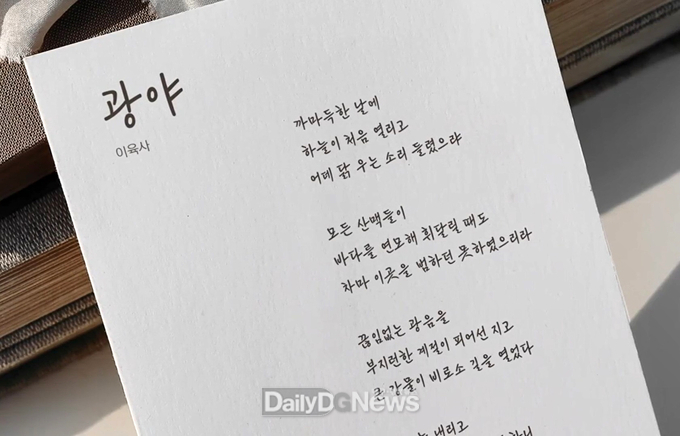 광야
이육사
까마득한 날에
하늘이 처음 열리고
어데 닭 우는 소리 들렸으랴
모든 산맥들이
바다를 연모해 휘달릴 때도
차마 이곳을 범하던 못하였으리라
끊임없는 광음을
부지런한 계절이 피어선 지고
큰 강물이 비로소 길을 열었다
내리고
DailyDGNews